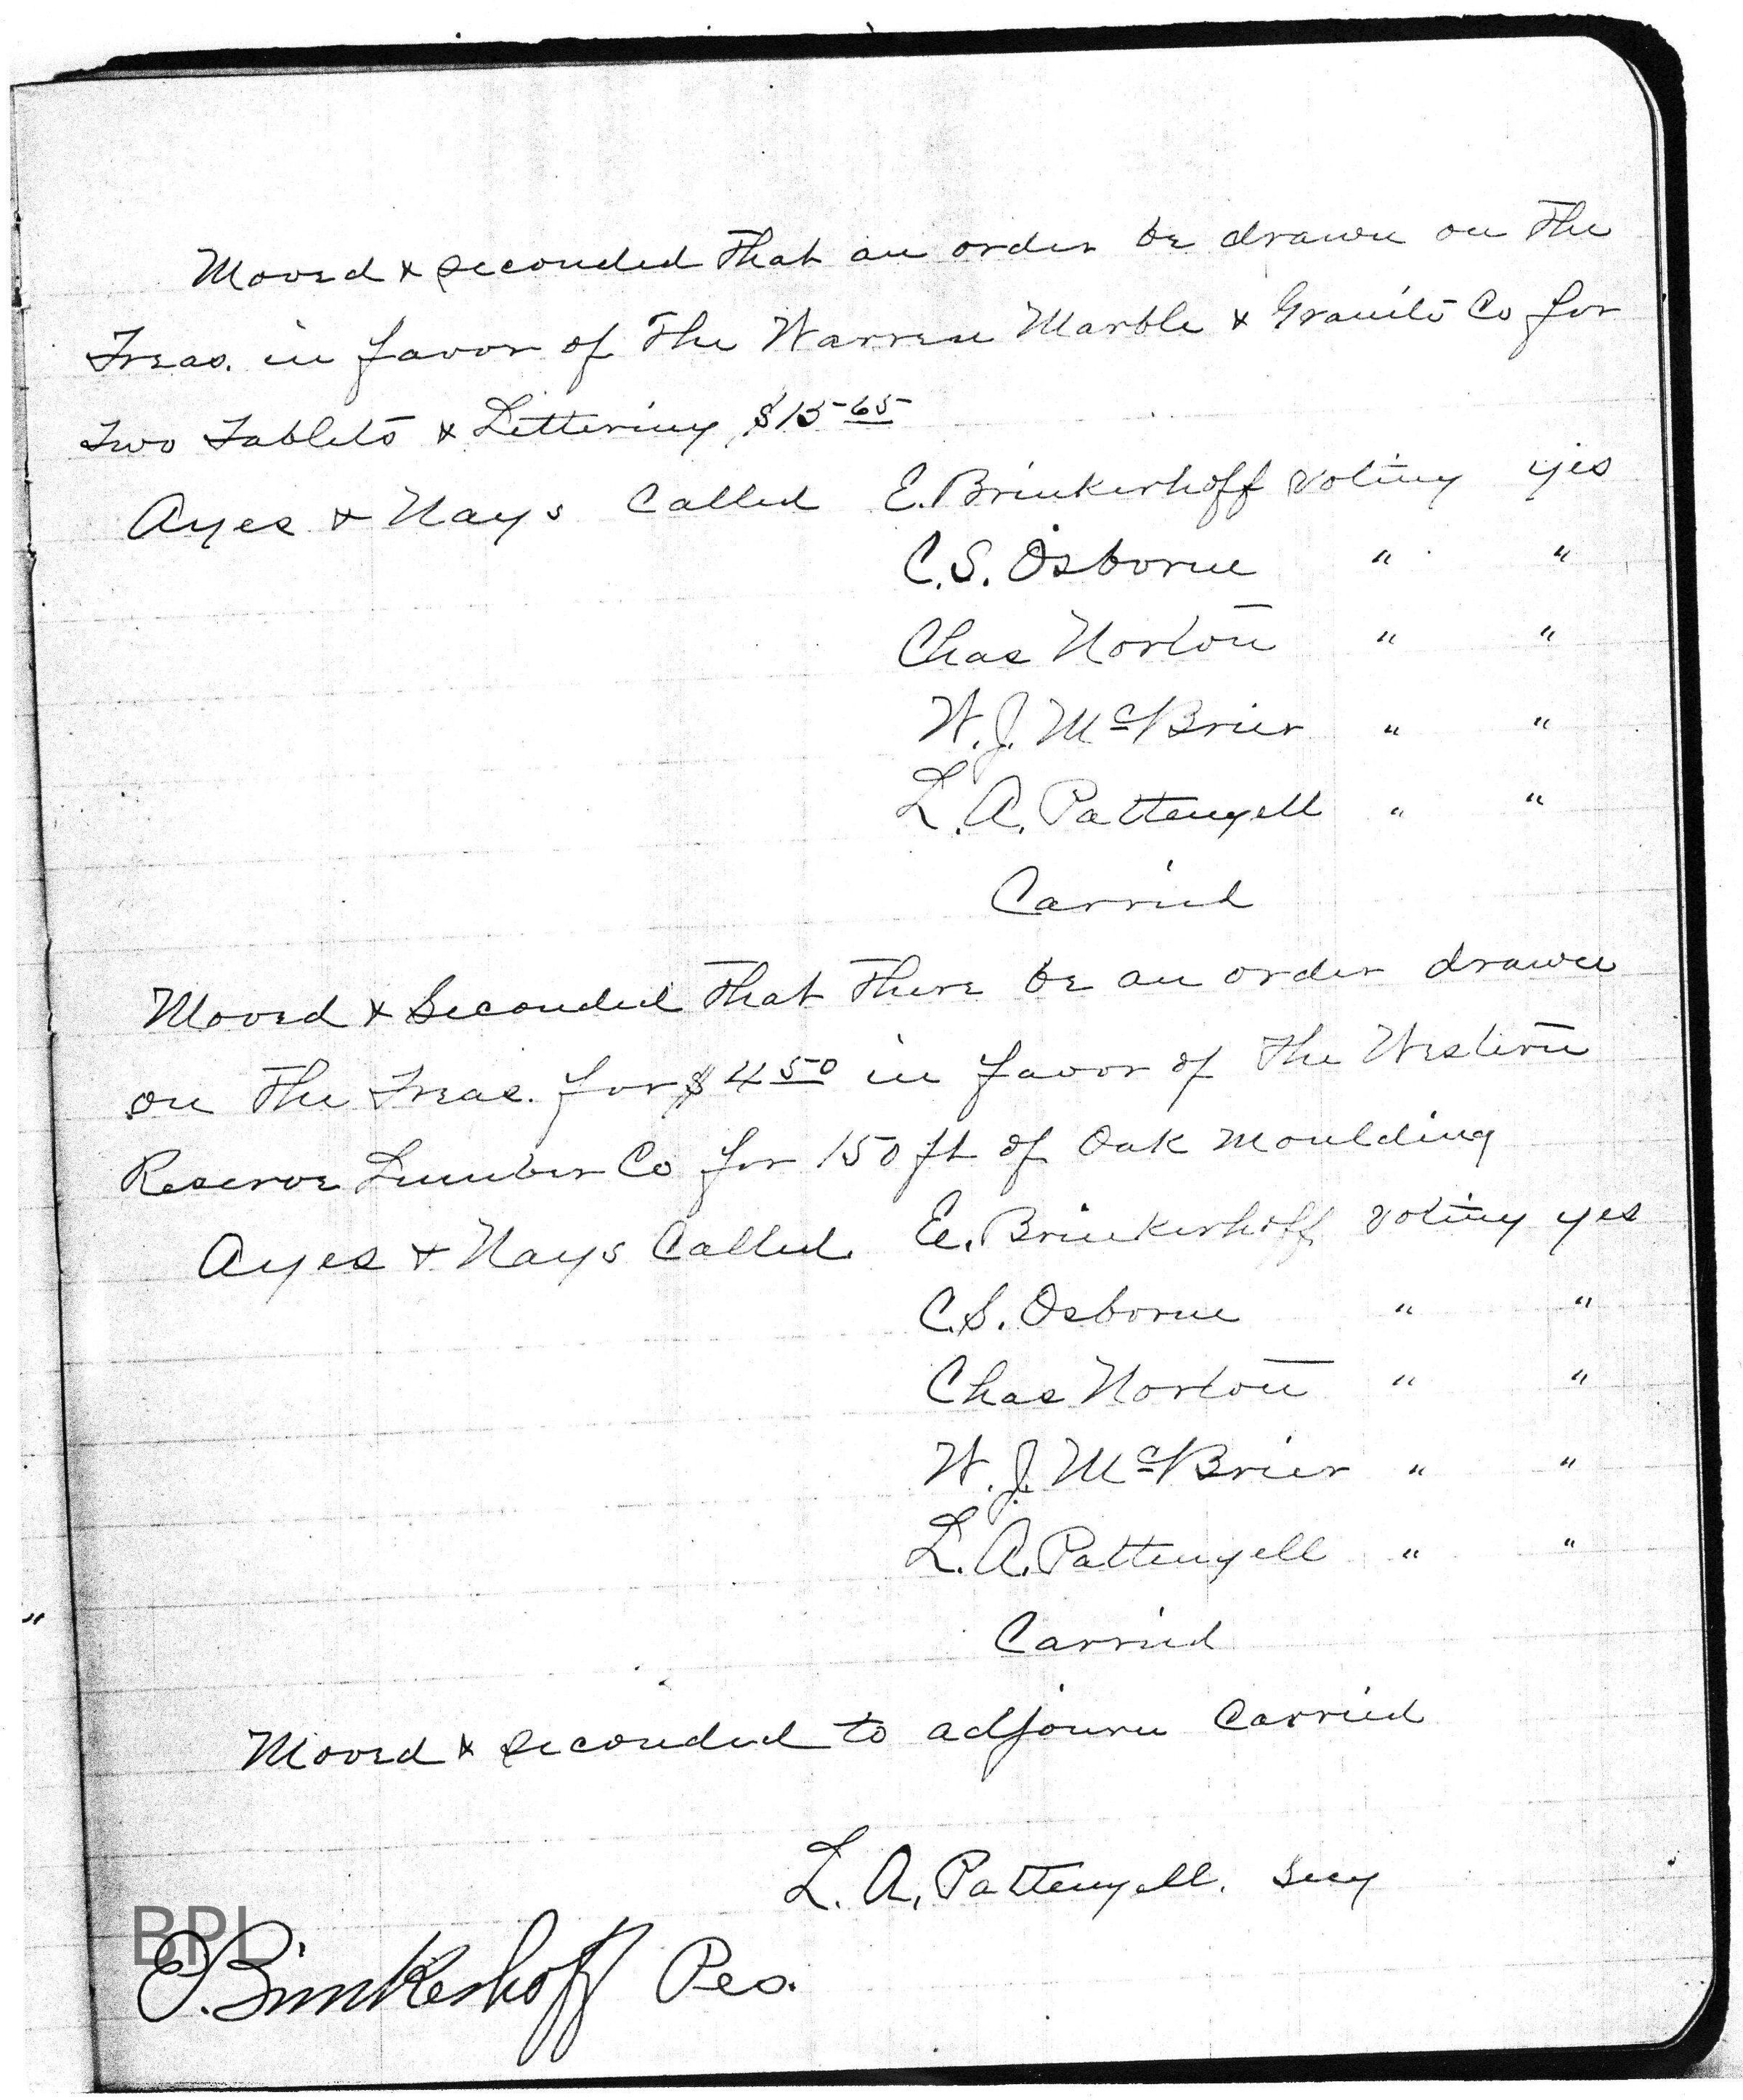 Moved & seconded that an order be drawn on the
Treas. in favor of the Warren Marble & Granite Co for
two tablets & Lettering $15 65
Ayes & Nays Called E. Brinkerhoff voting yes
C. S. Osborne " "
Chas Norton " "
W. J. McBrier " "
L. A. Pattengell " "
Carried
Moved & Seconded that there be an order drawn
on the Treas. for $4 50 in favor of the Western
Reserve Lumber Co for 150 ft of Oak Moulding
Ayes & Nays Called E. Brinkerhoff voting yes
C. S. Osborne " "
Chas Norton " "
W. J. McBrier " "
L. A. Pattengell " "
"
Carried
Moved & seconded to adjourn Carried
L. A. Pattengell. Secy
BPL
E. Brinkerhoff Pes.